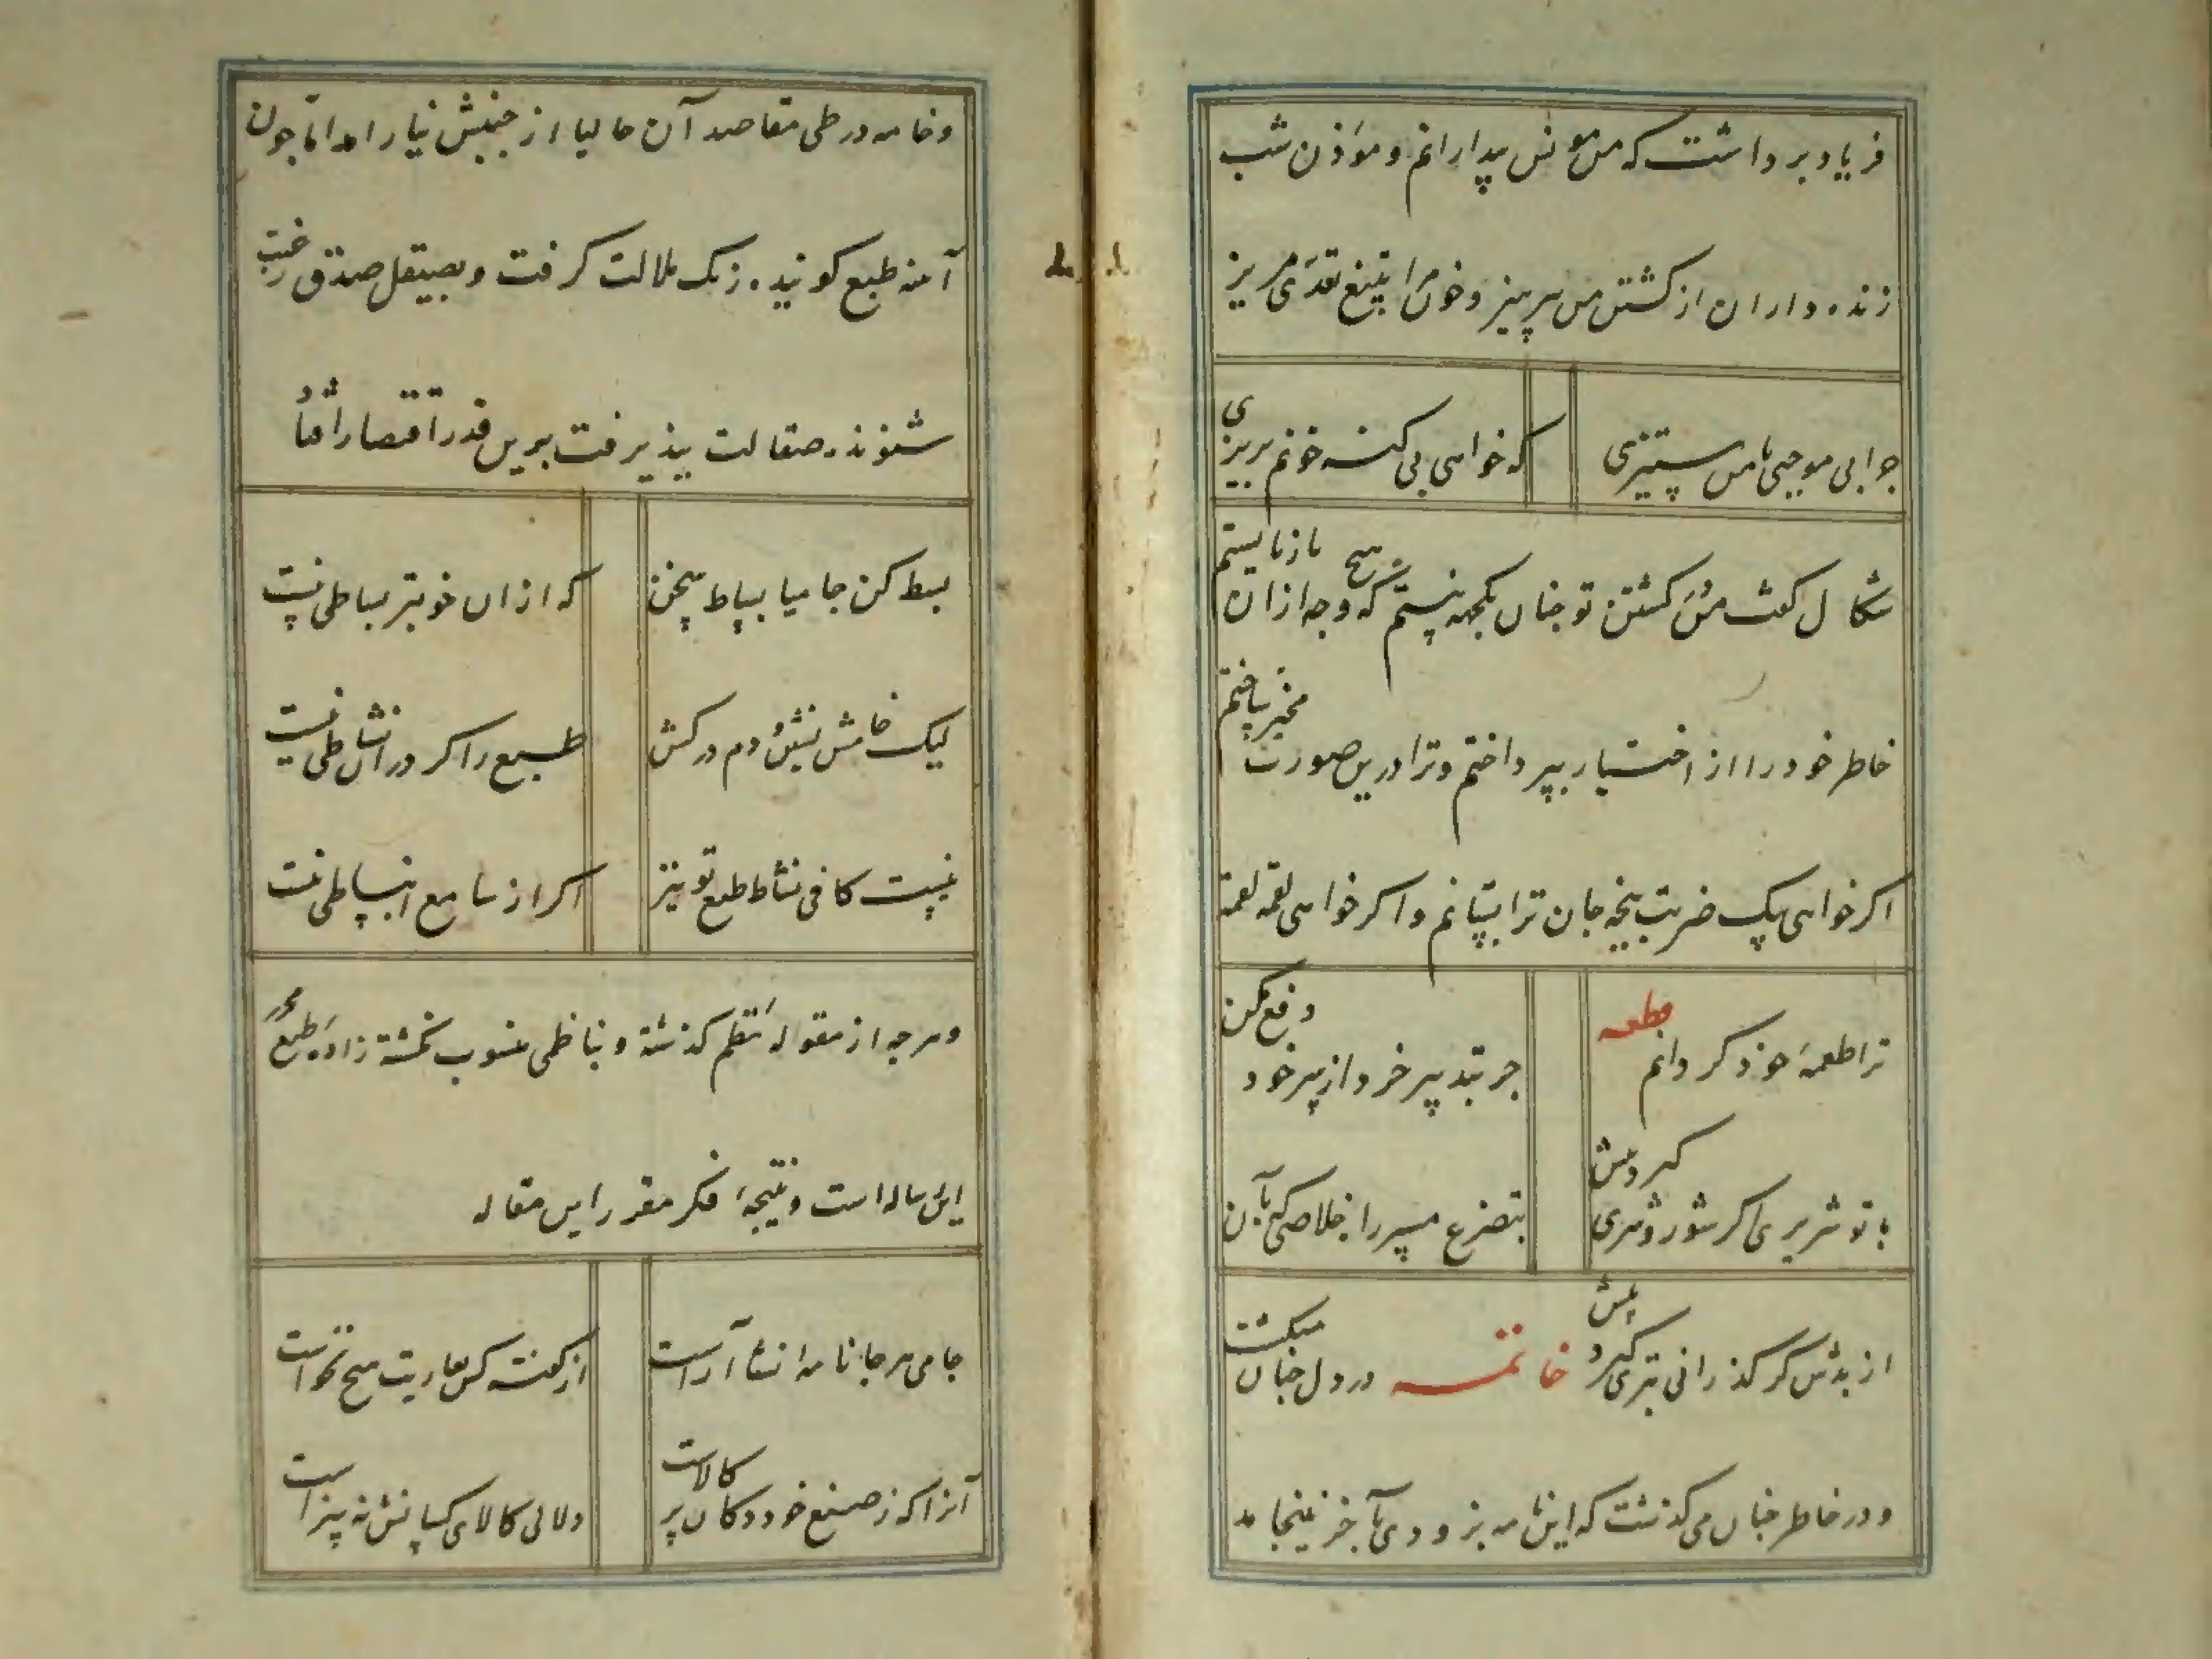 فریاد برداشت که من مونس بیدارانم و موذن شب
زنده داران از کشتن من بپرهیز و خون مرا بتیغ تعدی مریز
جرا بی موجبی با من ستیزی
که خواهی بی کنه خونم بریزی
شکال کفت من در کشتن تو جنان یکجهه نیستم که بهیچ وجه ازان باز نایستم
خاطر خود را از اختیار بپرداختم و ترا درین صورت مخیر ساختم
اکر خواهی بیک ضربت پنجه جان ترا بستانم و اکر خواهی لقمه لقمه
ترا طعمه خود کردانم
قطعه
جز بتدبیر خرد از سر خود دفع مکن
با تو شریری اکر شور و شری کیرد پیش
بتضرع مسپر راه خلاصی که بآن
از بدش کر کذرانی بتری کیرد پیش
خاتمه
در دل جنان میکشت
و در خاطر جنان می کذشت که این نامه بزودی بآخر نینجامد
و خامه در طی مقاصد آن حالیا از جنبش نیارامد اما جون
آینه طبع کوینده زنک ملالت کرفت و بصیقل صدق رغبت
شنونده صقالت نپذیرفت برین قدر اقتصار افتاد
بسط کن جامیا بساط سخن
که ازان خوبتر بساطی نیست
لیک خامش نشین و دم درکش
طبع را کر در آن نشاطی نیست
نیست کافی نشاط طبع تو نیز
اکر از سامع انبساطی نیست
و هرجه از مقوله نظم کذشته و بناظمی منسوب نکشته زاده طبع محرر
این رساله است و نتیجه فکر مقرر این مقاله
جامی هرجا نامه انشا آراست
از کفته کس بعاریت هیچ نخواست
آنرا که ز صنع خود دکان پر کالاست
دلالی کالای کسانش نه سزاست